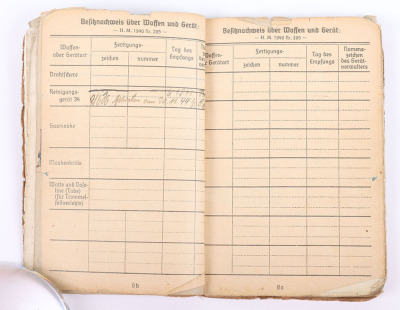 Besitznachweis über Waffen und Gerät:
— H. M. 1940 Nr. 295 —
Waffen- oder Gerätart
Fertigungs-
zeichen
nummer
Tag des Empfangs
Drahtschere
Reinigungsgerät 34
Gasmaske
Maskenbrille
Watte und Vaseline (Tube) (für Trommelfellverletzte)
8b
Besitznachweis über Waffen und Gerät:
— H. M. 1940 Nr. 295 —
Waffen- oder Gerätart
Fertigungs-
zeichen
nummer
Tag des Empfangs
Namenszeichen des Gerätverwalters
8c